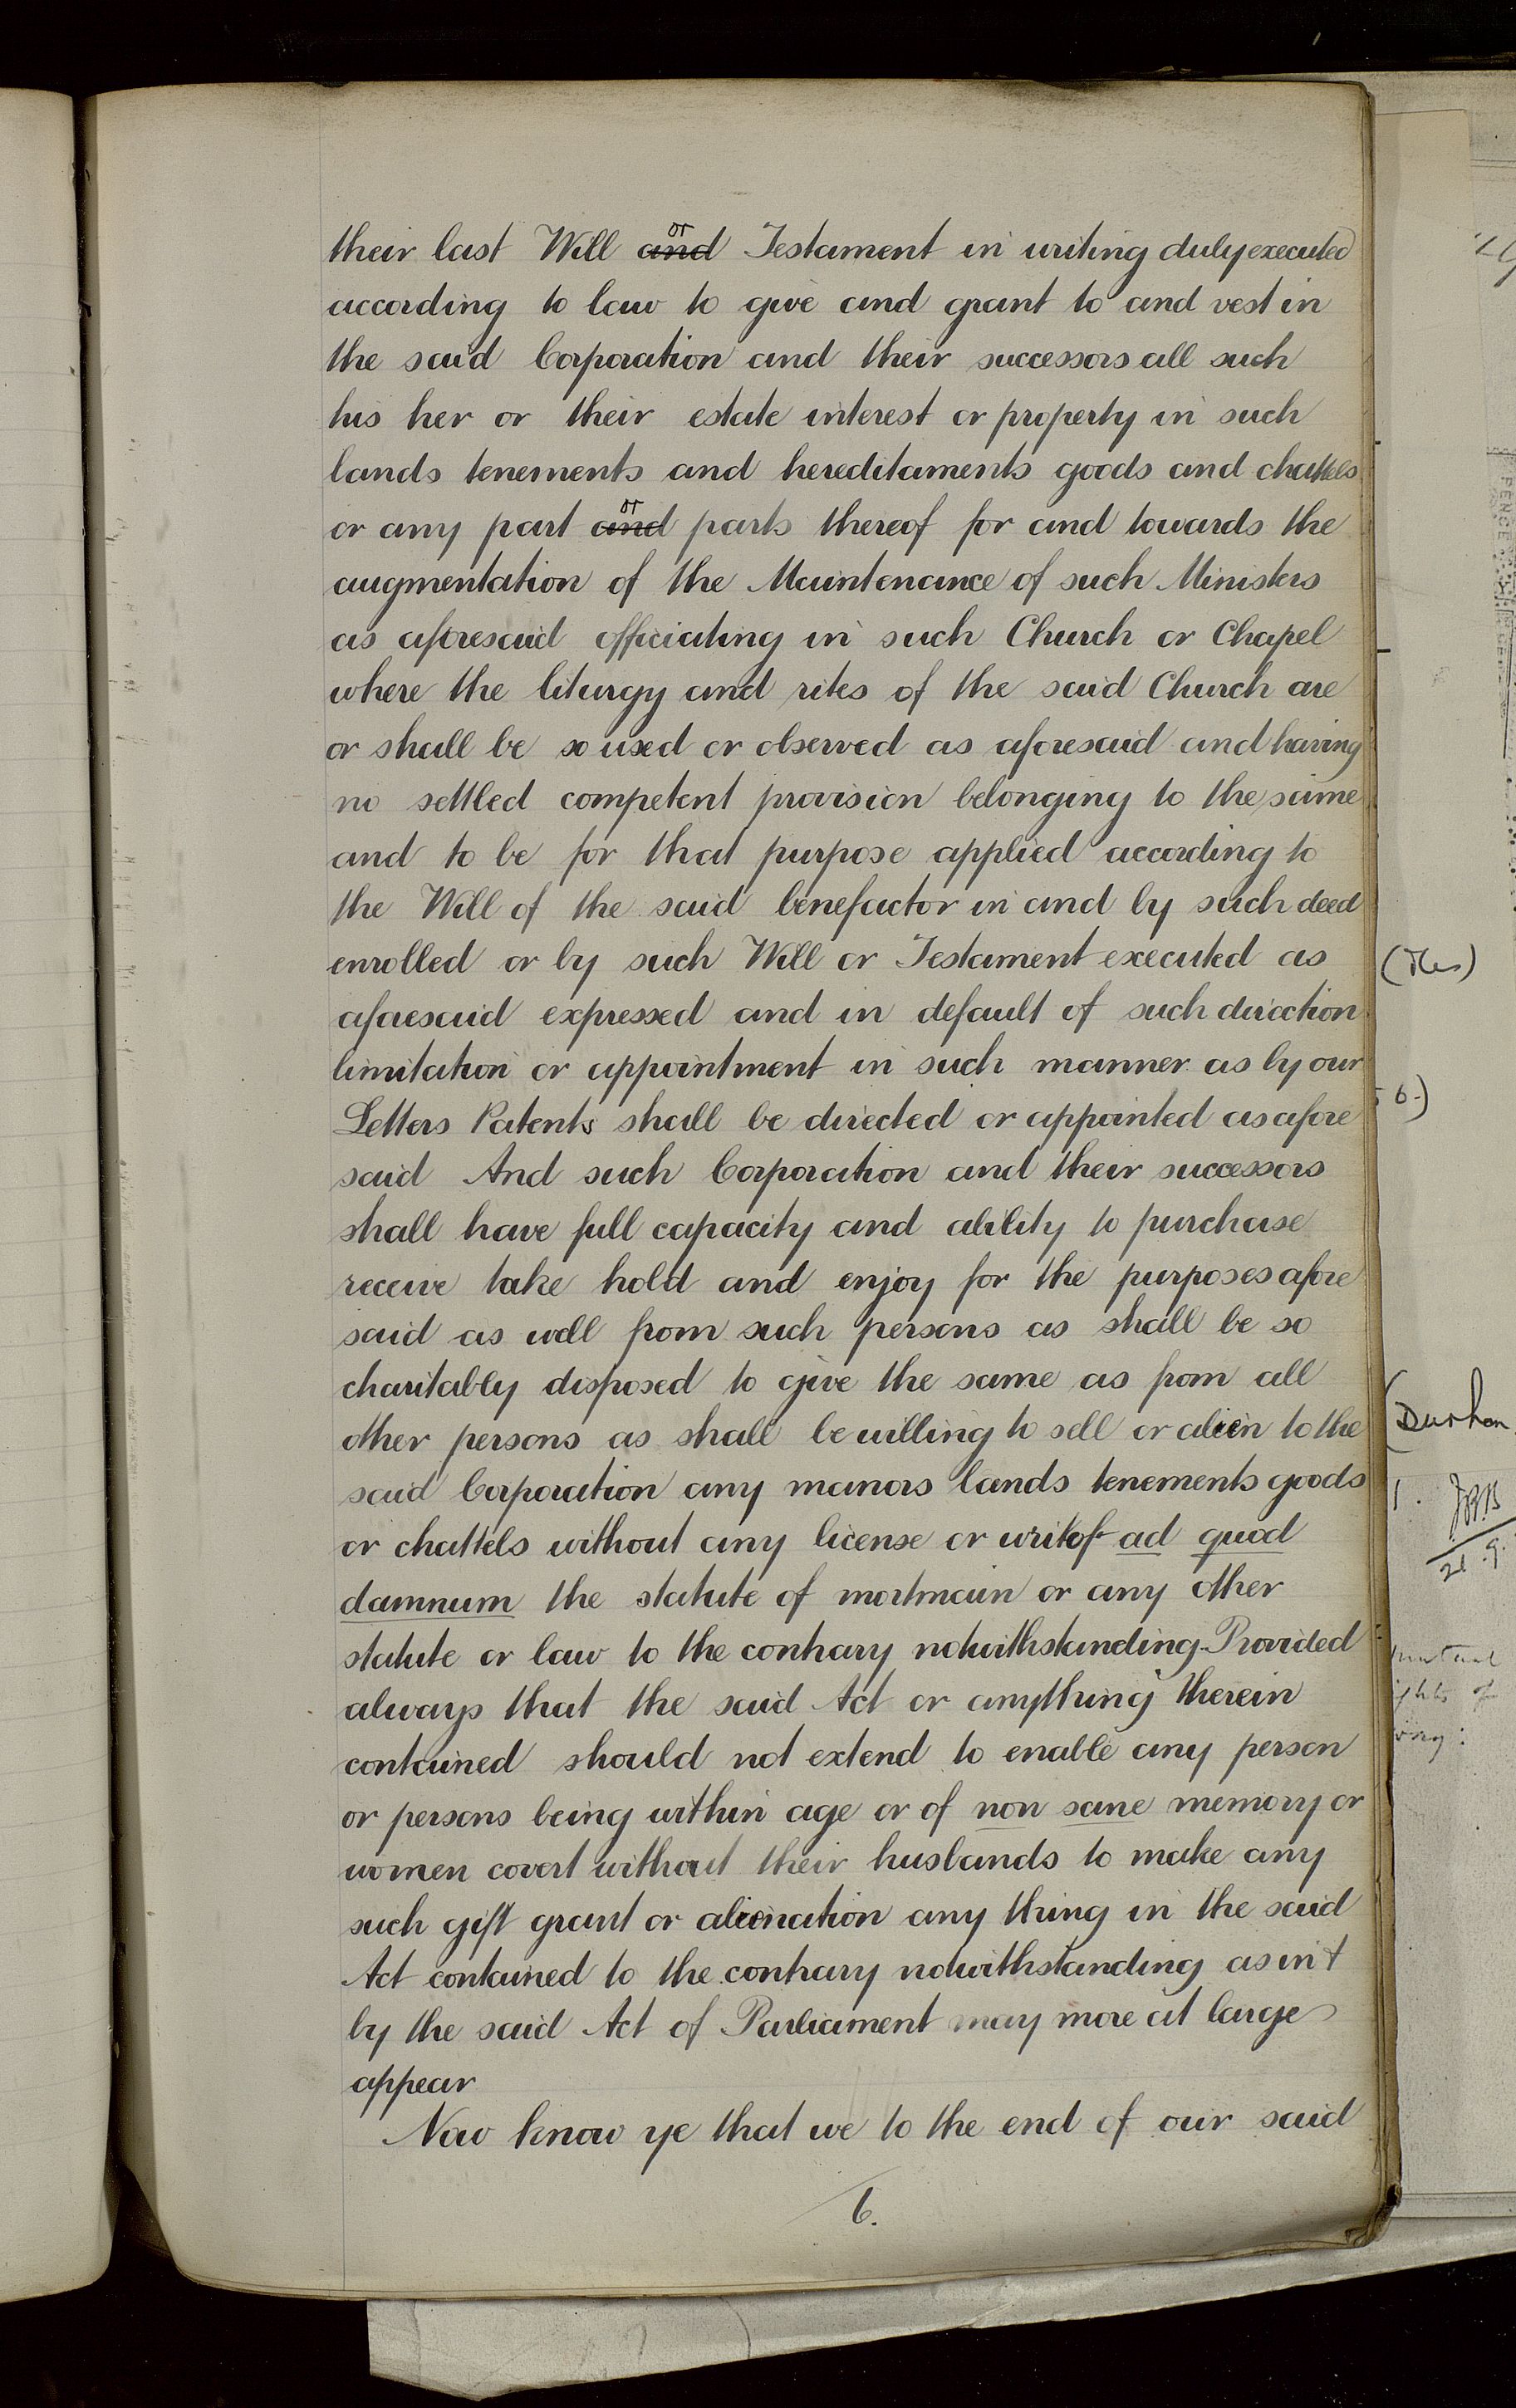 their last Will and or Testament in writing duly executed
according to law to give and grant to and vest in
the said Corporation and their successors all such
his her or their estate interest or property in such
lands tenements and hereditaments goods and chattels
or any part and or parts thereof for and towards the
augmentation of the Maintenance of such Ministers
as aforesaid officiating in such Church or Chapel
where the liturgy and rites of the said Church are
or shall be so used or observed as aforesaid and having
no settled competent provision belonging to the same
and to be for that purpose applied according to
the Will of the said benefactor in and by such deed
enrolled or by such Will or Testament executed as
aforesaid expressed and in default of such direction
limitation or appointment in such manner as by our
Letters Patents shall be directed or appointed as afore
said And such Corporation and their successors
shall have full capacity and ability to purchase
receive take hold and enjoy for the purposes afore
said as well from such persons as shall be so
charitably disposed to give the same as from all
other persons as shall be willing to sell or alien to the
said Corporation any manors lands tenements goods
or chattels without any license or writ of ad quod
damnum the statute of mortmain or any other
statute or law to the contrary notwithstanding Provided
always that the said Act or anything therein
contained should not extend to enable any person
or persons being within age or of non sane memory or
women covert without their husbands to make any
such gift grant or alienation any thing in the said
Act contained to the contrary notwithstanding as in &
by the said Act of Parliament may more at large
appear
Now know ye that we to the end of our said
6.
6.)
1.